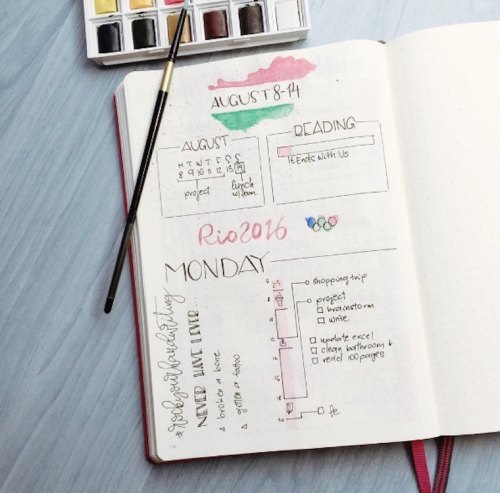 AUGUST 8-14
AUGUST
M T W T F S S
8 9 10 11 12 13 14
project
lunch
w/mom
READING
It Ends With Us
Rio2016
MONDAY
shopping trip
project
brainstorm
write
update excel
clean bathroom +
read 100 pages
fe
#rockyourhandwriting
NEVER HAVE I EVER...
broken a bone
gotten a tattoo